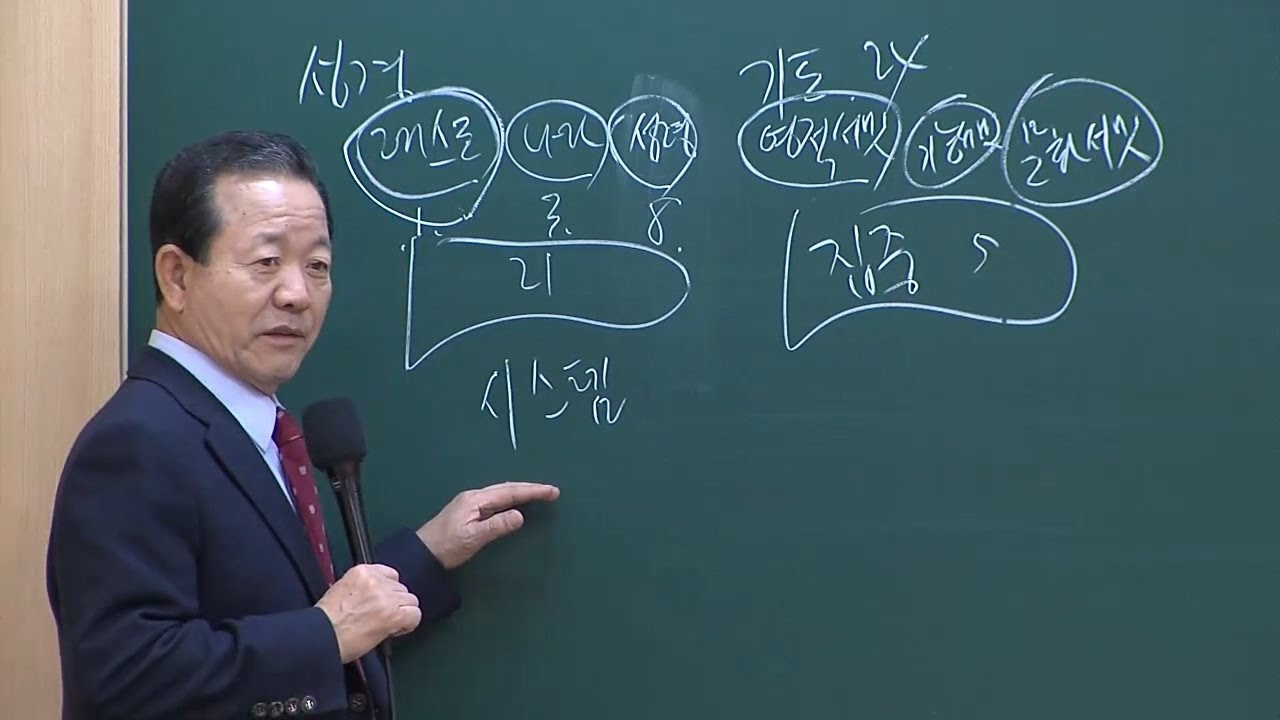 성경
그리스도 나라 성령
1. 3. 8.
21
시스템
기도 24
영적서밋 기능서밋 문화서밋
집중 5